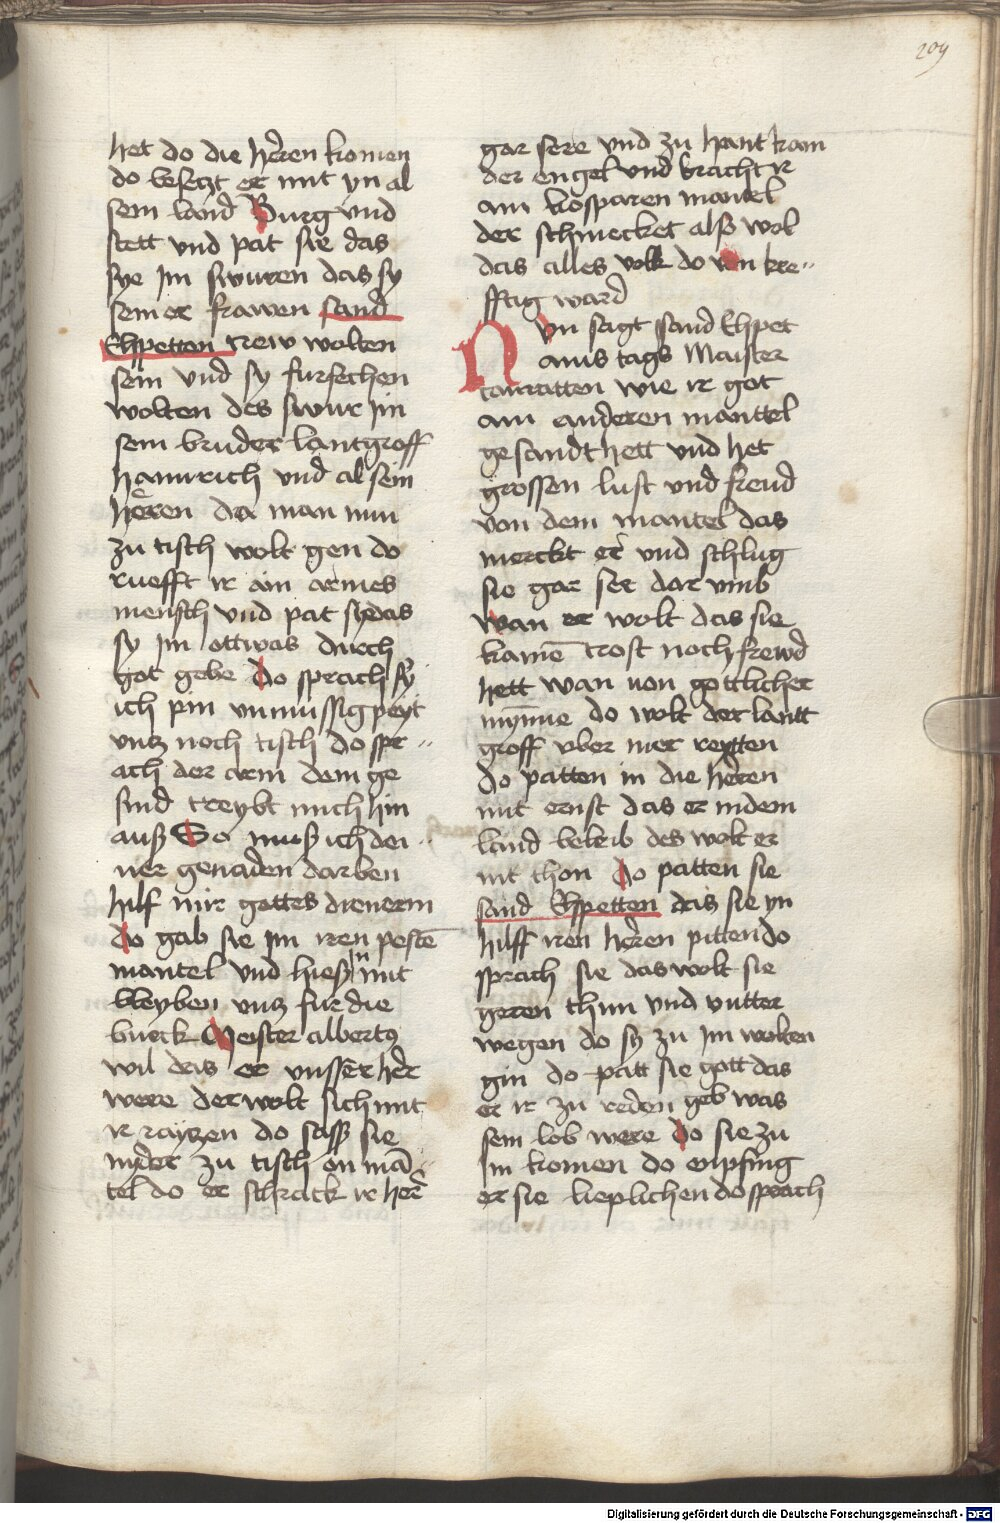 209
het do die herren komen
do besetzt er mit yn al
sein land Burg und
stett vnd pat sie das
sye im swuren das sy
seiner frawen sand
Elspetten trew wolten
sein vnd sy fursechen
wolten des swur im
sein bruder lantgroff
hainrich vnd al sein
herren da man nun
zu tisch wolt gen do
ruefft ir ain armes
mensch vnd pat sy das
sy im ettwas durch
got gebe do sprach sy
ich pin vnmussig peyt
vntz noch tisch do spr
ach der arm dein ge
sind treybt mich hin
auß So muß ich dei
ner genaden darben
hilf mir gottes dienerin
do gab sie im iren pestē
mantel vnd hieß in mit
bleyben vntz fur die
bruck Meister albertus
wil das er vnsser her
were der wolt sich mit
ir raytzen do saß sie
nyder zu tisch on mā
tel do er schrack ir herr
gar sere vnd zu hant kam
der engel vnd bracht ir
ain kosparen mantel
der schmecket alß wol
das alles volk do von kre
fftig ward
Nvn sagt sand Elspet
ains tags Maister
conratten wie ir got
ain anderen manttel
gesandt hett vnd het
grossen lust vnd freud
von dem mantel das
merckt er vnd schlug
sie gar ser dar vmb
wan er wolt das sie
kainē trost noch frewd
hett wan von gottlicher
mynne do wolt der lantt
groff vber mer reytten
do patten in die herren
mit ernst das er indem
land beleib des wolt er
nit thon do patten sie
sand Elspetten das sie yn
hilff iren herren pitten do
sprach sie das wolt sie
geren thun vnd vntter
wegen do sy zu im wolten
gin do patt sie gott das
er ir zu reden geb was
sein lob were do sie zu
im komen do enpfing
er sie lieplichen do sprach
Digitalisierung gefördert durch die Deutsche Forschungsgemeinschaft - DFG